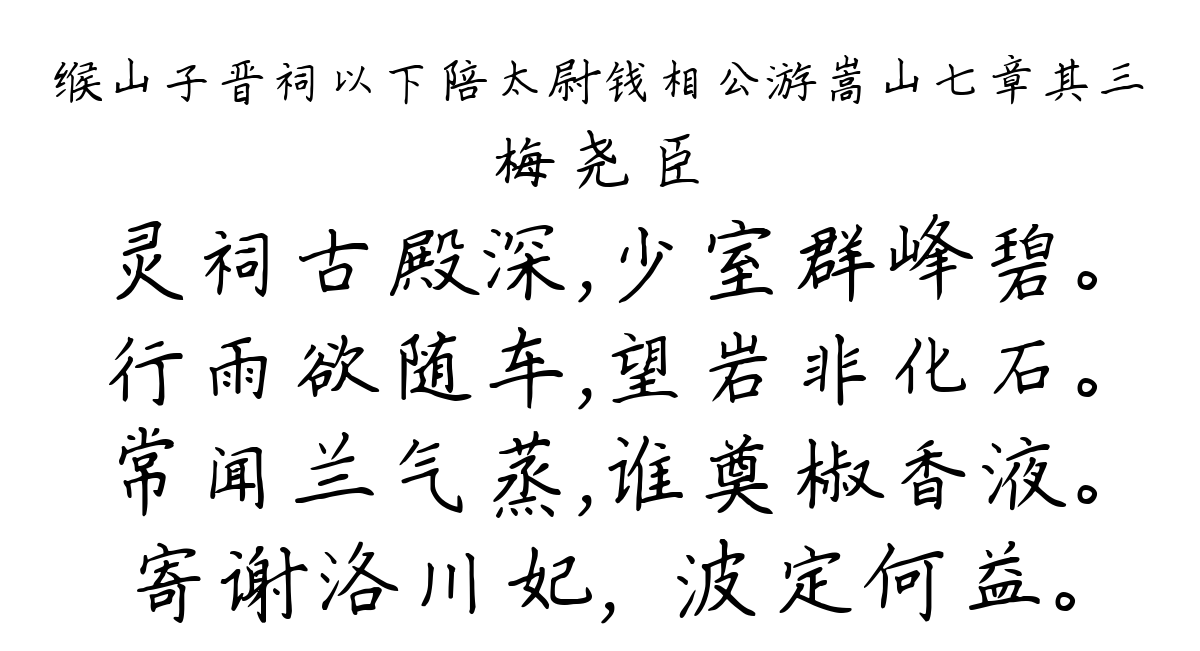 缑山子晋祠以下陪太尉钱相公游嵩山七章其三
梅尧臣
灵祠古殿深,少室群峰碧。
行雨欲随车,望岩非化石。
常闻兰气蒸,谁奠椒香液。
寄谢洛川妃,波定何益。